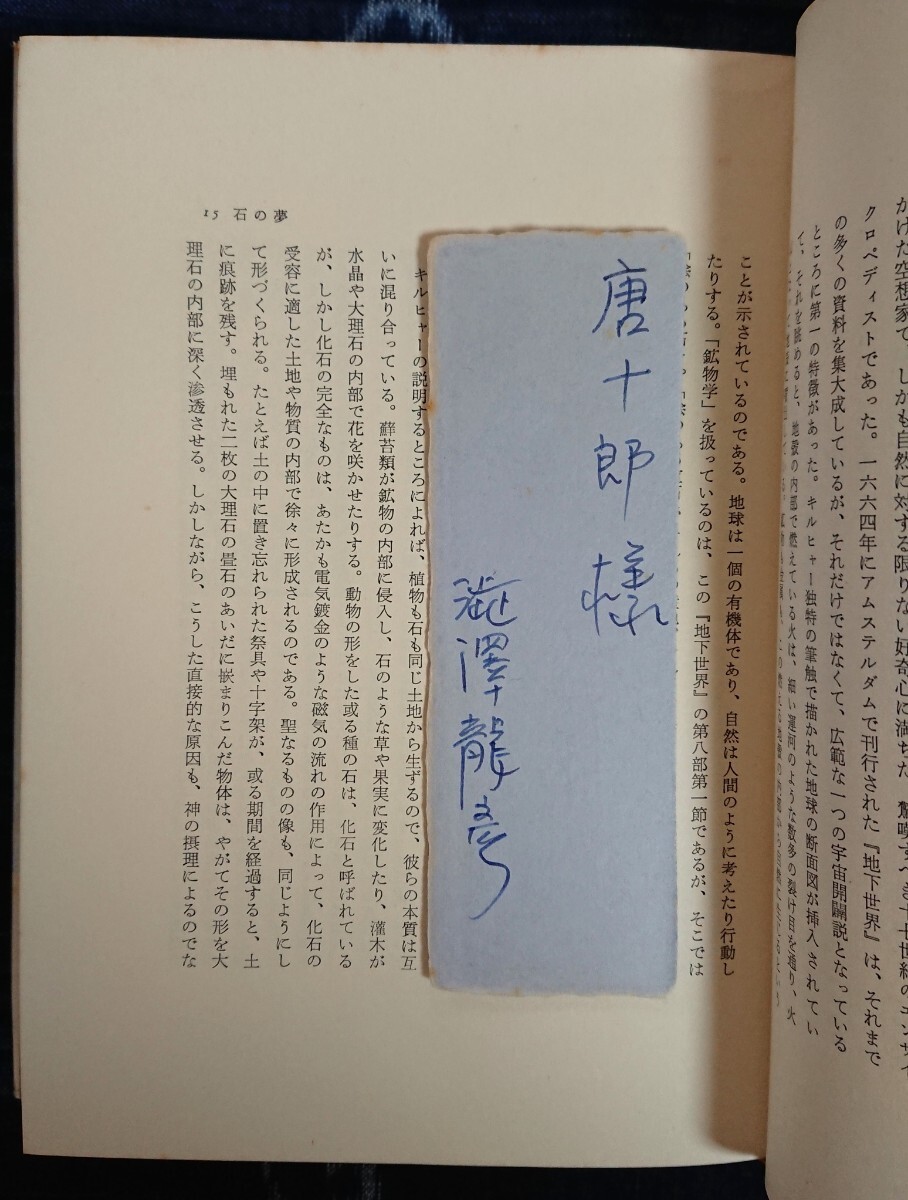 かけた空想家で、しかも自然に対する限りない好奇心に満ちた
クロペディストであった。一六六四年にアムステルダムで刊行された『地下世界』は、それまで
の多くの資料を集大成しているが、それだけではなくて、広範な一つの宇宙開闢説となっている
ところに第一の特徴があった。キルヒャー独特の筆触で描かれた地球の断面図が挿入されてい
て、それを眺めると、地殻の内部で燃えている火は、細い運河のような数多の裂け目を通り、火
ことが示されているのである。地球は一個の有機体であり、自然は人間のように考えたり行動し
たりする。「鉱物学」を扱っているのは、この『地下世界』の第八部第一節であるが、そこでは
唐十郎様
澁澤龍彦
キルヒャーの説明するところによれば、植物も石も同じ土地から生ずるので、彼らの本質は互
いに混り合っている。蘚苔類が鉱物の内部に侵入し、石のような草や果実に変化したり、灌木が
水晶や大理石の内部で花を咲かせたりする。動物の形をした或る種の石は、化石と呼ばれている
が、しかし化石の完全なものは、あたかも電気鍍金のような磁気の流れの作用によって、化石の
受容に適した土地や物質の内部で徐々に形成されるのである。聖なるものの像も、同じようにし
て形づくられる。たとえば土の中に置き忘れられた祭具や十字架が、或る期間を経過すると、土
に痕跡を残す。埋もれた二枚の大理石の畳石のあいだに嵌まりこんだ物体は、やがてその形を大
理石の内部に深く滲透させる。しかしながら、こうした直接的な原因も、神の摂理によるのでな
15 石の夢